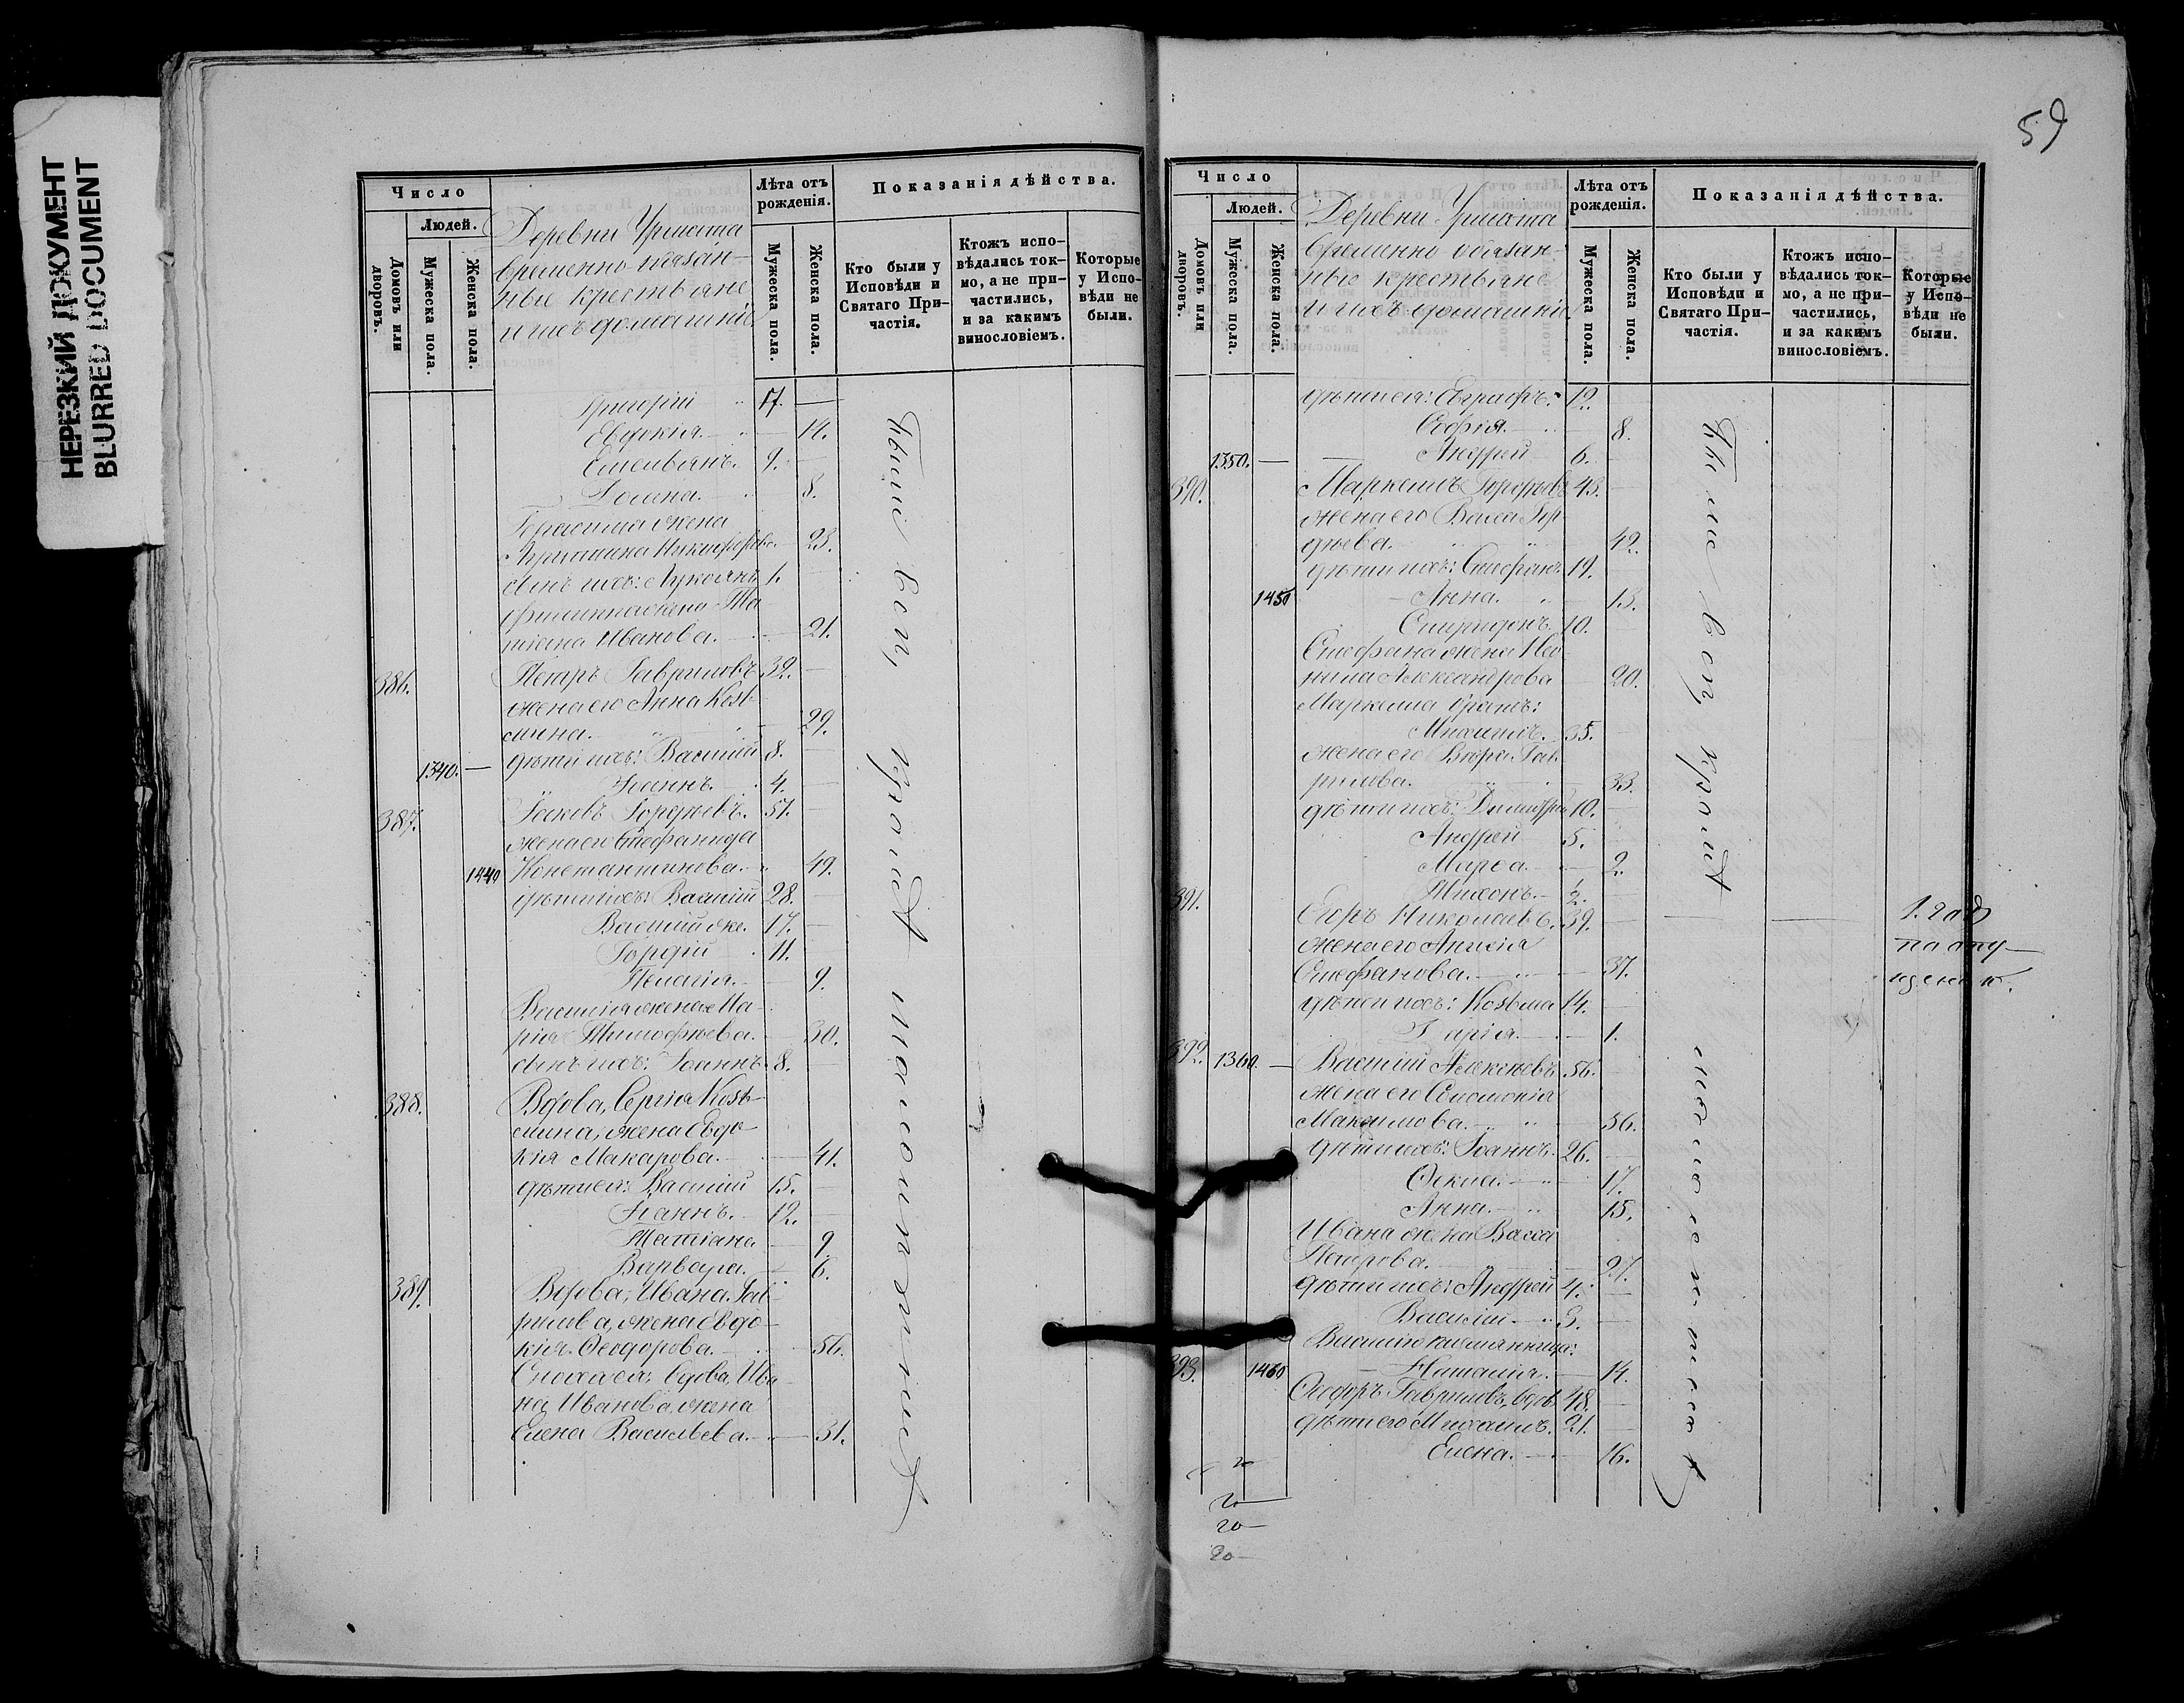 НЕРЕЗКИЙ ДОКУМЕНТ
BLURRED DOCUMENT
Число
Людей.
Домовъ или дворовъ.
Мужеска пола.
Женска пола.
Деревни
временно обязан-
ные крестьяне
и ихъ домашніе
Лѣта отъ рожденія.
Мужеска пола.
Женска пола.
Показанія дѣйства.
Кто были у Исповѣди и Святаго При-
частія.
Ктожъ испо-
вѣдались ток-
мо, а не при-
частились,
и за какимъ
винословіемъ.
Которые
у Испо-
вѣди не
были.
Григорій 17. —
Евдокія. — 14.
Емельянъ. 9. —
Домна. 8.
Герасима жена
Агрипина Никифорова. 23.
сынъ ихъ: Лукіянъ 1.
Филиппа жена Та-
тіана Иванова. — 21.
386. Петръ Гавриловъ 32. —
жена его Анна Козь-
мина. — 29.
1340. — дѣти ихъ: Василій 8.
Іоаннъ. 4. —
387. Іаковъ Гордѣевъ. 51. —
жена его Стефанида
1440 Константинова. 49.
дѣти ихъ: Василій 28. —
Василій же. 17. —
Гордій 11.
Пелагія. — 9.
Василія жена Ма-
рія Тимофѣева. — 30.
сынъ ихъ: Іоаннъ. 8. —
388. Вдова, Сергія Козь-
мина, жена Евдо-
кія Макарова. — 41.
дѣти ея: Василій 15. —
Іоаннъ. 12. —
Татіана 9
Варвара. — 6.
389. Вдова, Ивана Гав-
рилова, жена Евдо-
кія Ѳеодорова. — 56.
Сноха ея: вдова, Ива-
на Иванова, жена
Елена Васильева. — 31.
Были
59
Число
Людей.
Домовъ или дворовъ.
Мужеска пола.
Женска пола.
Деревни
временно обязан-
ные крестьяне
и ихъ домашніе
Лѣта отъ рожденія.
Мужеска пола.
Женска пола.
Показанія дѣйства.
Кто были у Исповѣди и Святаго При-
частія.
Ктожъ испо-
вѣдались ток-
мо, а не при-
частились,
и за какимъ
винословіемъ.
Которые
у Испо-
вѣди не
были.
дѣти ея: Евграфъ. 12.
Софія. 8.
1350. — Андрей 6. —
390. Маркеллъ Гордѣевъ 43. —
жена его Васса Гор-
дѣева. 42.
дѣти ихъ: Стефанъ 19. —
1450 Анна. 13.
Спиридонъ. 10. —
Стефана жена Нео-
нила Александрова — 20.
Маркелла братъ:
Михаилъ. 35. —
жена его Вѣра Гав-
рилова. 33.
дѣти ихъ: Димитрій 10. —
Андрей 5. —
Марѳа. — 2.
Тихонъ. — ½.
391. Егоръ Николаевъ. 39. — 1. годъ
жена его Анисія по опу-
Стефанова. — 37. щенію.
дѣти ихъ: Козьма 14. —
Дарія. — 1.
392. 1360. — Василій Алексѣевъ 56. —
жена его Соломонія
Максимова. 56.
дѣти ихъ: Іоаннъ. 26. —
Ѳекла. — 17.
Анна. — 15.
Ивана жена Васса
Петрова. — 27.
дѣти ихъ: Андрей 4. —
Василій. — 3. —
Василія племянница:
1460 — Наталія. — 14.
393. Ѳедоръ Гавриловъ, вдов. 48. —
дѣти его Михаилъ. 21. —
Елена. — 16.
Были
20 —
20 —
20 —